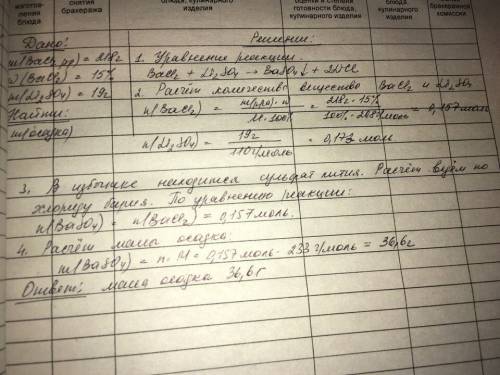 изготов-
ления
блюда
снятия
бракеража
блюда, кулинарного
изделия
оценки и степени
готовности блюда,
кулинарного изделия
блюда,
кулинарного
изделия
бракеражной
комиссии
Дано:
m(BaCl₂ р-р) = 218г
ω(BaCl₂) = 15%
m(Li₂SO₄) = 19г
Найти:
m(осадка)
Решение:
1. Уравнение реакции.
BaCl₂ + Li₂SO₄ → BaSO₄↓ + 2LiCl
2. Расчёт количества вещества BaCl₂ и Li₂SO₄
n(BaCl₂) = m(р-ра)·ω / M·100% = 218г·15% / 100%·208г/моль = 0,157 моль
n(Li₂SO₄) = 19г / 110г/моль = 0,173 моль
3. В избытке находится сульфат лития. Расчёт ведём по
хлориду бария. По уравнению реакции:
n(BaSO₄) = n(BaCl₂) = 0,157 моль.
4. Расчёт массы осадка:
m(BaSO₄) = n·M = 0,157 моль · 233 г/моль = 36,6г
Ответ: масса осадка 36,6г